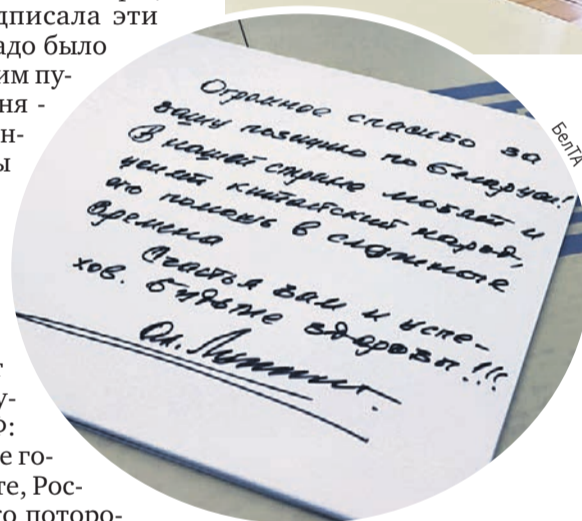 дписала эти
адо было
им пу-
ня -
н-
ы
т
у-
Ф:
е го-
те, Рос-
о поторо-
Огромное спасибо за
вашу позицию по Беларуси!
В нашей стране любят и
ценят китайский народ,
его помощь в сложные
времена
Счастья вам и успе-
хов. Будьте здоровы!!!
БелТА